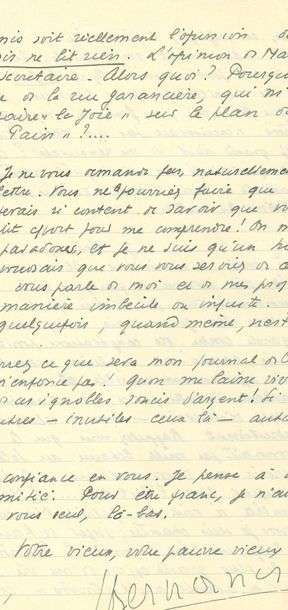 soit réellement l'opinion de
ne lit rien. L'opinion de Ma
secrétaire. Alors quoi? Pourquoi
de la rue garancière, qui m'
"la Joie" sur le plan de
Pain"?....
Je ne vous demande pas, naturellement
lettre. Vous ne pourriez faire que
serais si content de savoir que vo
fait effort pour me comprendre! On m
paradoxes, et je ne suis qu'un h
voudrais que vous vous serviez de c
vous parle de moi et de mes pro
manière imbécile ou injuste..
quelquefois, quand même, n'est
ce que sera mon journal de
m'enfonce pas! Qu'on me laisse viv
ignobles soucis d'argent! Si
- inutiles ceux là - aut
confiance en vous. Je pense à
Pour être franc, je n'a
vous seul, là-bas.
Votre vieux, votre pauvre vieux
Bernanos